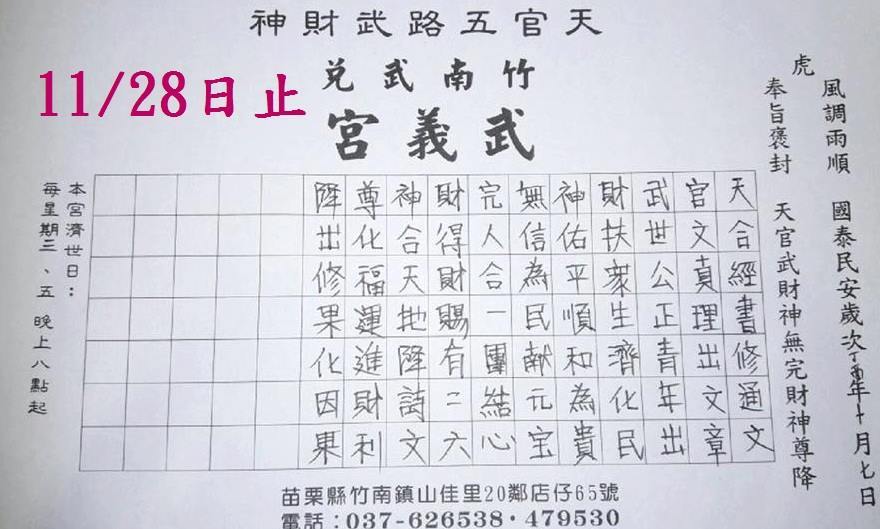 天官五路武財神
竹南武兌
武義宮
11/28日止
虎
風調雨順 國泰民安歲次丁酉年十月七日
奉旨褒封 天官武財神無完財神尊降
天合經書修通文
官文真理出文章
武世公正青年出
財扶眾生濟化民
神佑平順和為貴
無信為民献元宝
完人合一團結心
財得財賜有二六
神合天地降詩文
尊化福運進財利
降出修果化因果
本宮濟世日：
每星期三、五 晚上八點起
苗栗縣竹南鎮山佳里20鄰店仔65號
電話：037-626538·479530